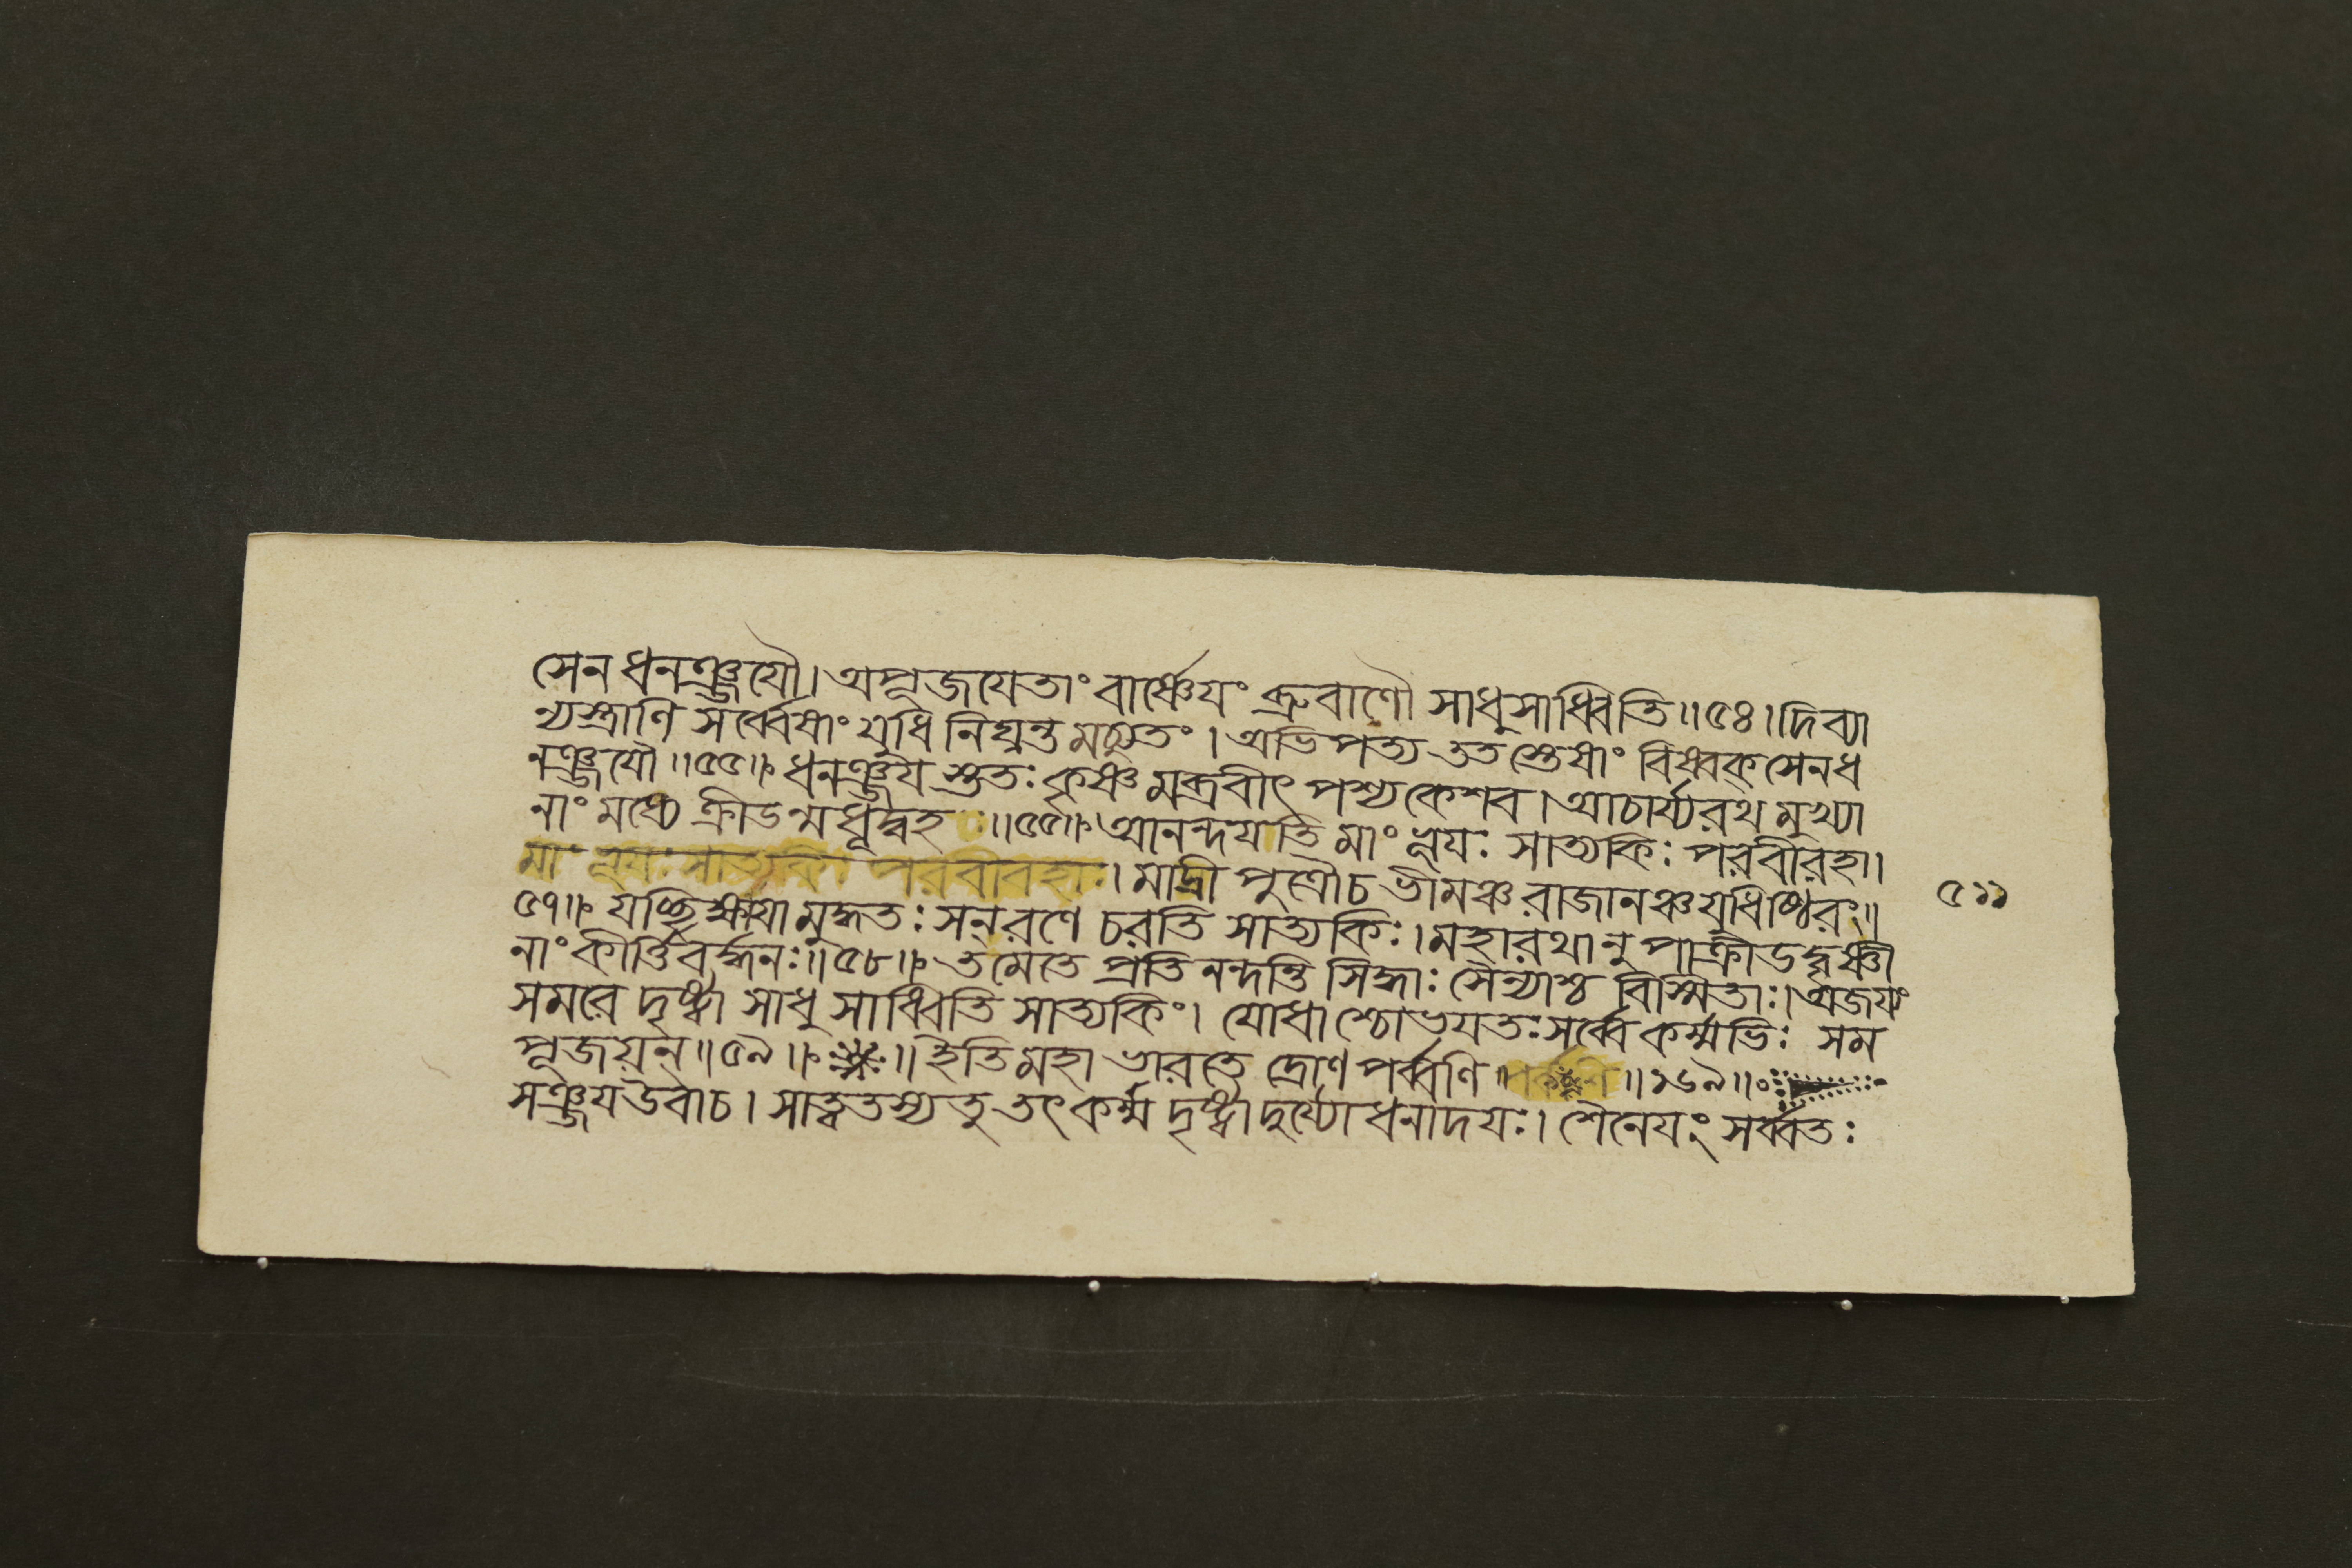 সেন ধনঞ্জযৌ। অপূজযেতাং বার্ষ্ণেযং ব্রুবাণৌ সাধুসাধ্বিতি॥৫৪। দিব্যা
ন্যস্ত্রাণি সর্ব্বেষাং যুধি নিঘ্নন্তমচ্যুতং। অভিপত্য ততস্তেষাং বিষ্বক্সেনধ
নঞ্জযৌ॥৫৫॥ ধনঞ্জয স্তুতঃ কৃষ্ণমব্রবীৎ পশ্য কেশব। আচার্য্যরথ মুখ্যা
নাং মধ্যে ক্রীডন্মধূদ্বহ॥৫৫॥ আনন্দযতি মাং ভূযঃ সাত্যকিঃ পরবীরহা।
মাং ভূযঃ সাত্যকিঃ পরবীরহা। মাদ্রী পুত্রৌচ ভীমঞ্চ রাজানঞ্চ যুধিষ্ঠিরং॥
৫৭॥ যচ্ছিক্ষযা মুদ্ধতঃ সন্ রণে চরতি সাত্যকিঃ। মহারথানুপাক্রীডদ্বৃষ্ণী
নাং কীর্ত্তিবর্দ্ধনঃ॥৫৮॥ তমেতে প্রতি নন্দন্তি সিদ্ধাঃ সৈন্যাশ্চ বিস্মিতাঃ। অজয্যং
সমরে দৃষ্ট্বা সাধু সাধ্বিতি সাত্যকিং। যোধাশ্চোভযতঃ সর্ব্বে কর্ম্মভিঃ সম
পূজয়ন্॥৫৯॥ ॥ ইতি মহাভারতে দ্রোণ পর্ব্বণি ॥১৬৯॥
সঞ্জয উবাচ। সাত্বতস্য তু তৎ কর্ম্ম দৃষ্ট্বা দুর্য্যোধনাদযঃ। শৈনেযং সর্ব্বতঃ
৫১১